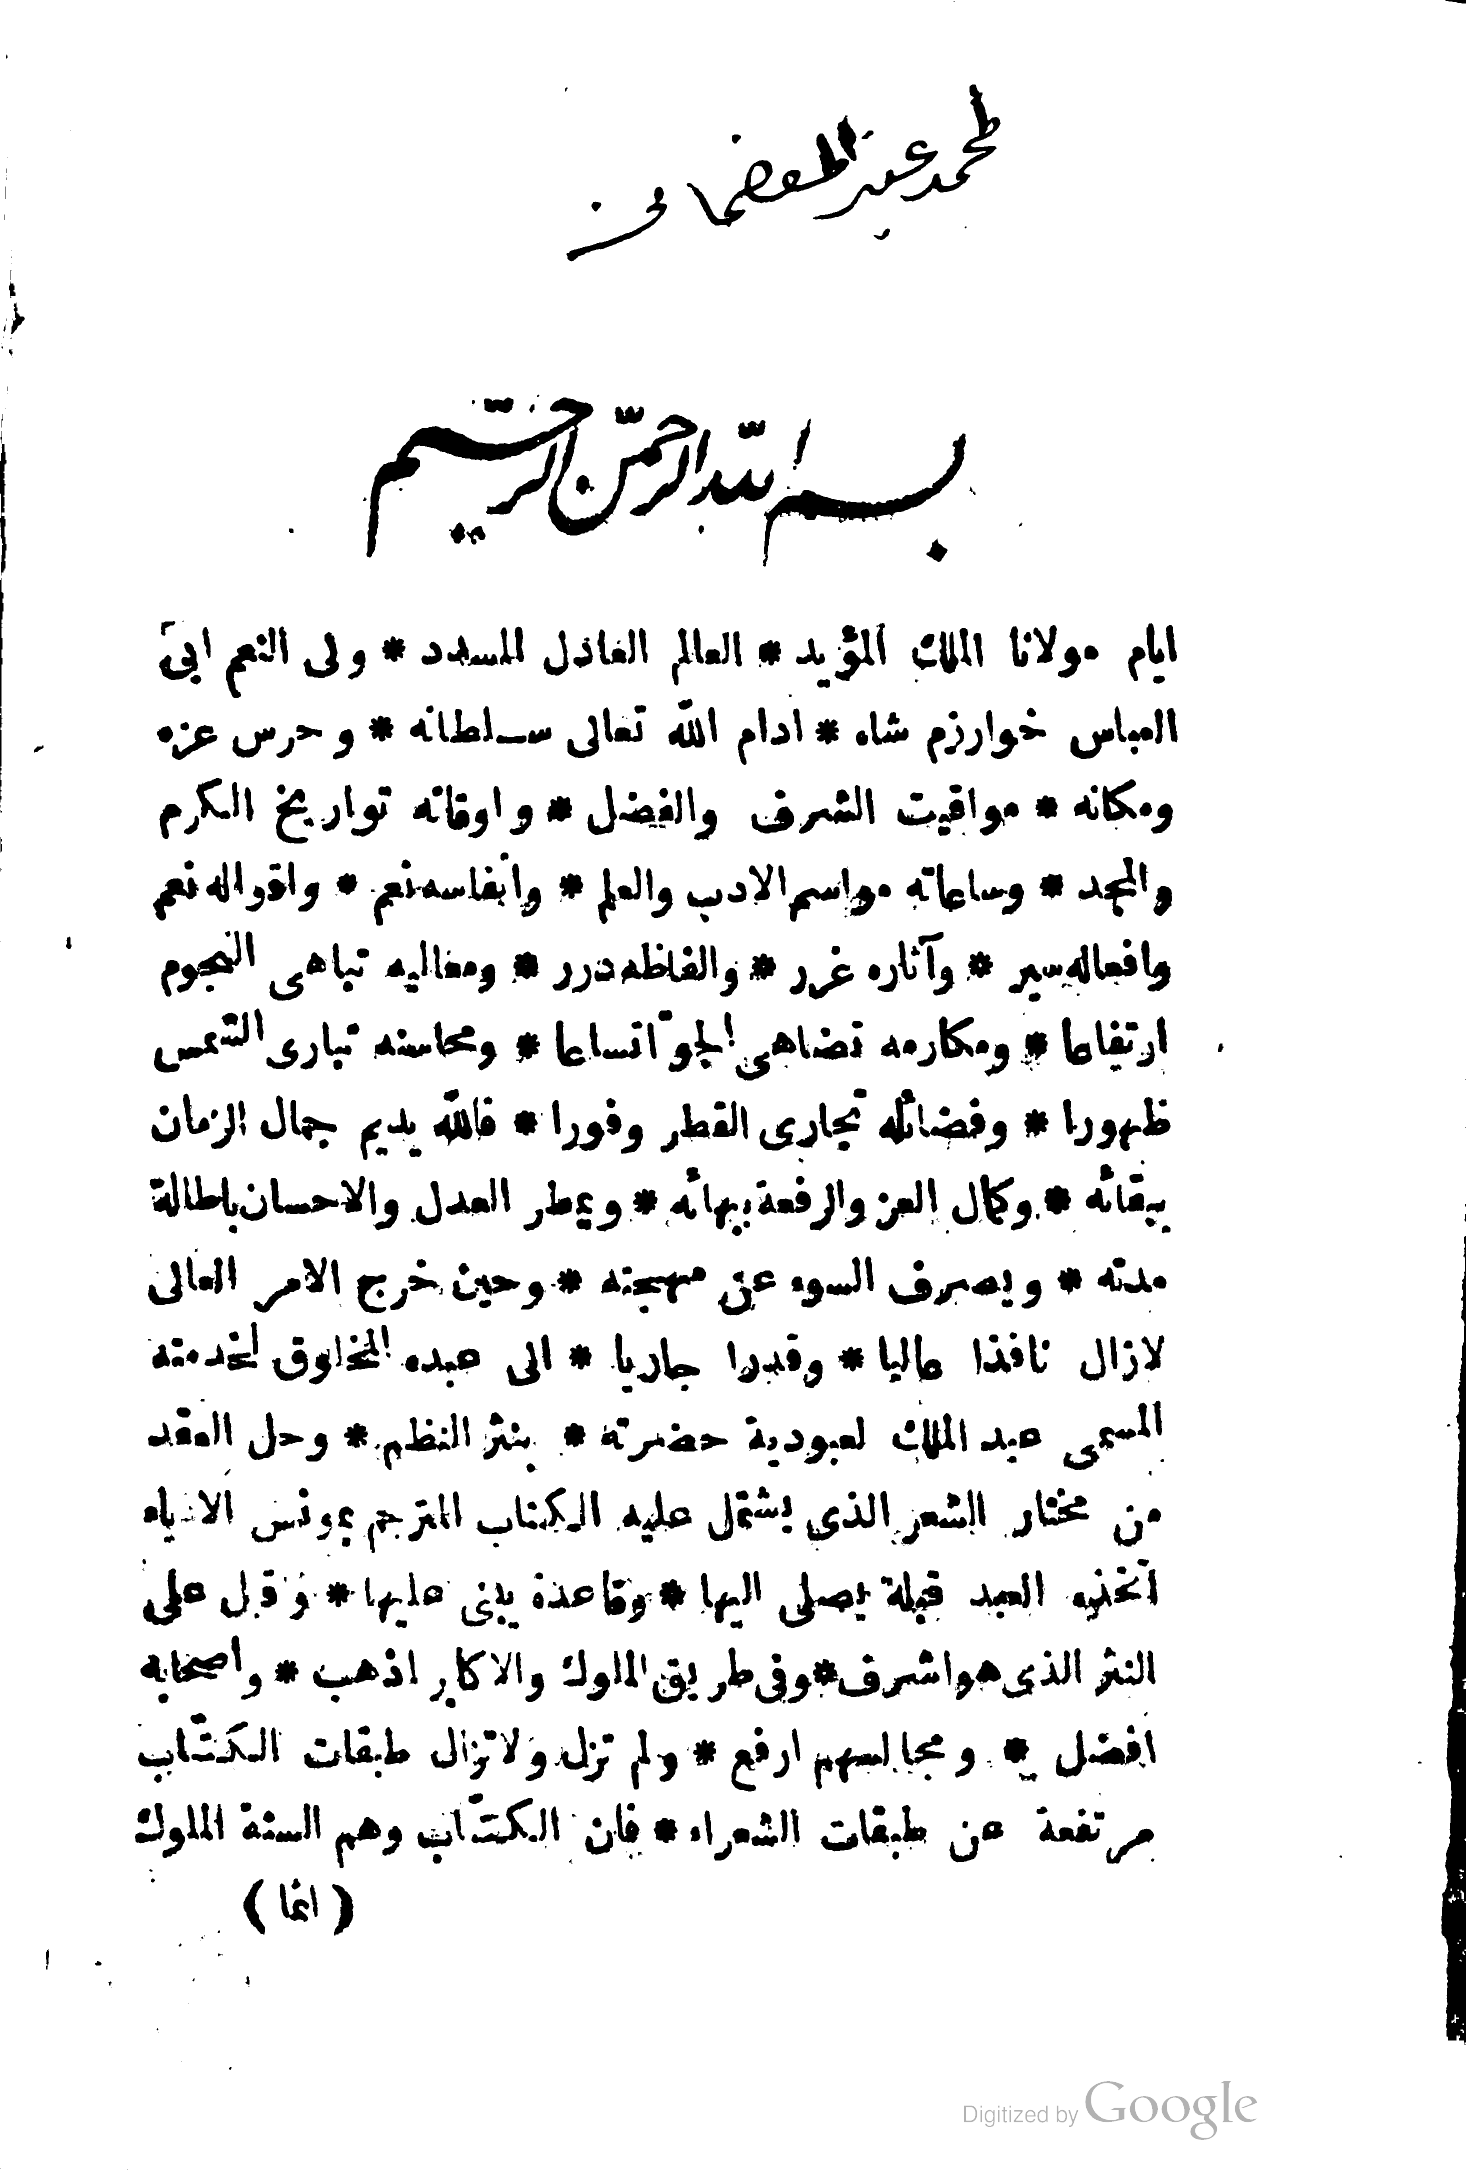 بسم الله الرحمن الرحيم
ايام مولانا الملك المؤيد * العالم العادل المسدد * ولى النعم ابى
العباس خوارزم شاه * ادام الله تعالى سلطانه * وحرس عزه
ومكانه * مواقيت الشرف والفضل * واوقاته تواريخ الكرم
والمجد * وساعاته مواسم الادب والعلم * وأنفاسه نعم * واقواله نعم
وافعاله سير * وآثاره غرر * والفاظه درر * ومعاليه تباهى النجوم
ارتفاعا * ومكارمه تضاهى الجوّ اتساعا * ومحاسنه تبارى الشمس
ظهورا * وفضائله تجارى القطر وفورا * فالله يديم جمال الزمان
ببقائه * وكمال العز والرفعة ببهائه * ويمطر العدل والاحسان باطالة
مدته * ويصرف السوء عن مهجته * وحين خرج الامر العالى
لازال نافذا عاليا * وقدرا جاريا * الى عبده المخلوق لخدمته
المسمى عبد الملك لعبودية حضرته * بنثر النظم * وحل العقد
من مختار الشعر الذى يشتمل عليه الكتاب المترجم بمونس الادباء
اتخذه العبد قبلة يصلى اليها * وقاعدة يبنى عليها * وقبل على
النثر الذى هو اشرف * وفى طريق الملوك والاكابر اذهب * واصحابه
افضل * ومجالسهم ارفع * ولم تزل ولا تزال طبقات الكتّاب
مرتفعة عن طبقات الشعراء * فان الكتّاب وهم السنة الملوك
( انما )
Digitized by Google